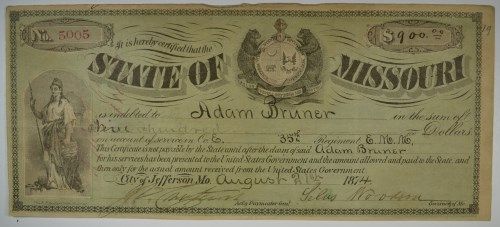 No. 5005
$900.00
It is hereby certified that the
STATE OF MISSOURI
is indebted to Adam Bruner in the sum of
Nine Hundred Dollars
on account of services in Co E. 33rd Regiment E. M. M.
This Certificate is not payable by the State until after the claim of said Adam Bruner
for his services has been presented to the United States Government and the amount allowed and paid to the State, and
then only for the actual amount received from the United States Government.
City of Jefferson, Mo. August 1874.
Silas Woodson
Actg Paymaster Genl Governor of Mo.